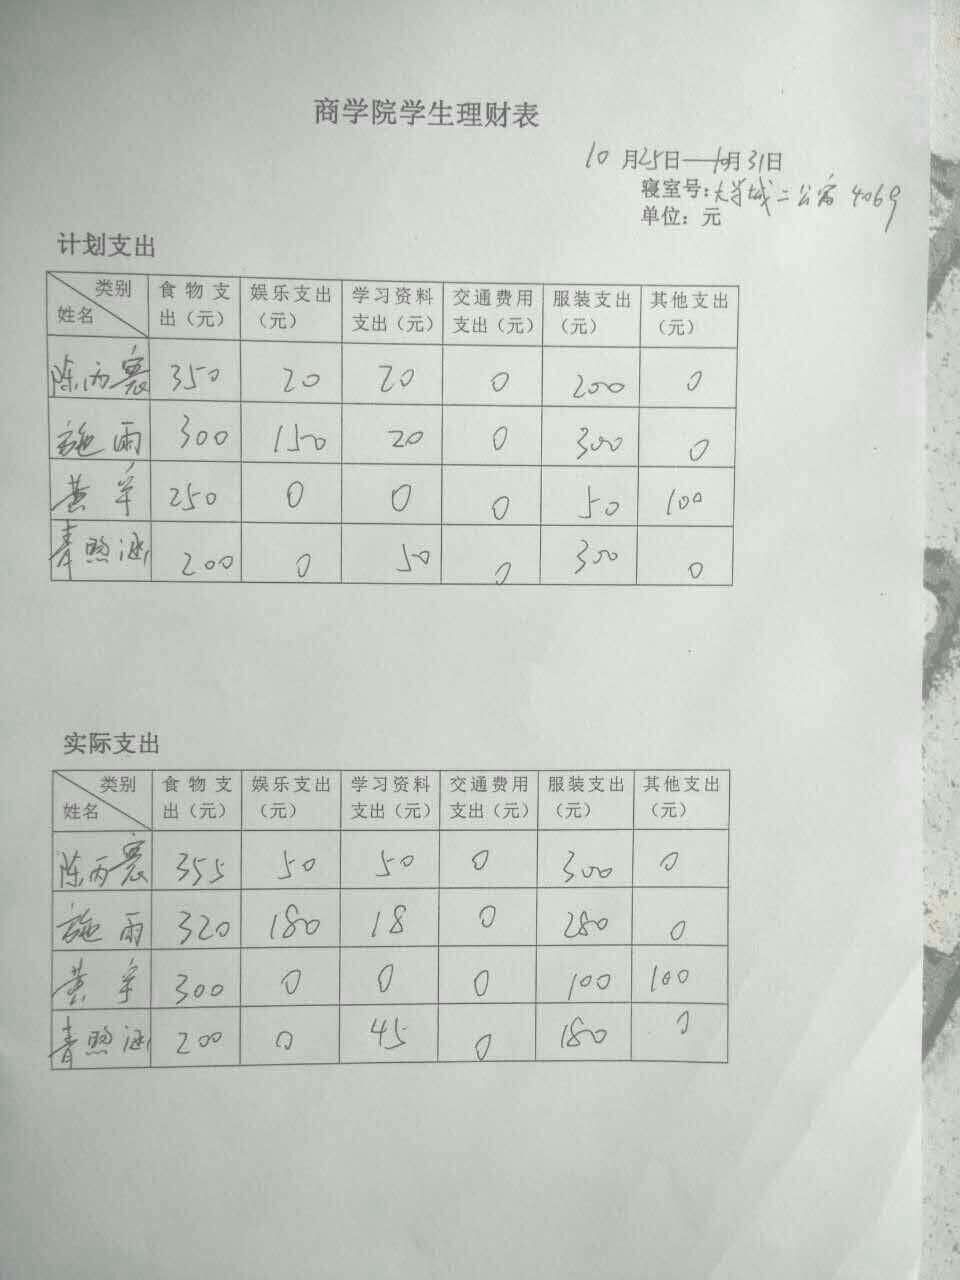 商学院学生理财表
10月25日—10月31日
寝室号：大学城二公寓 4069
单位：元
计划支出
类别 姓名 食物支出（元） 娱乐支出（元） 学习资料支出（元） 交通费用支出（元） 服装支出（元） 其他支出（元）
陈丙寰 350 20 20 0 200 0
施雨 300 150 20 0 300 0
黄宇 250 0 0 0 50 100
青照涵 200 0 50 0 300 0
实际支出
类别 姓名 食物支出（元） 娱乐支出（元） 学习资料支出（元） 交通费用支出（元） 服装支出（元） 其他支出（元）
陈丙寰 355 50 50 0 300 0
施雨 320 180 18 0 280 0
黄宇 300 0 0 0 100 100
青照涵 200 0 45 0 180 0